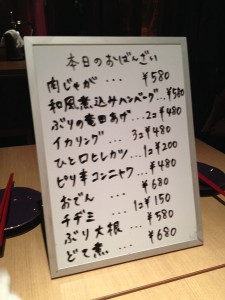 本日のおばんざい
肉じゃが ... ¥580
和風煮込みハンバーグ...¥580
ぶりの竜田あげ...2コ ¥480
イカリング ... 3コ ¥480
ひと口ヒレカツ ... 1コ ¥200
ピリ辛コンニャク... ¥480
おでん ... ¥680
チヂミ ... 1コ ¥150
ぶり大根 ... ¥580
どて煮 ... ¥680